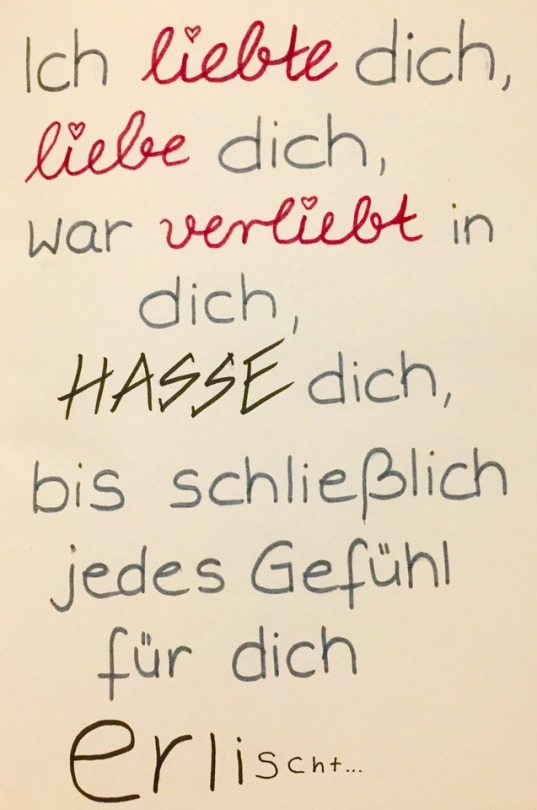 Ich liebte dich,
liebe dich,
war verliebt in
dich,
HASSE dich,
bis schließlich
jedes Gefühl
für dich
erlischt...